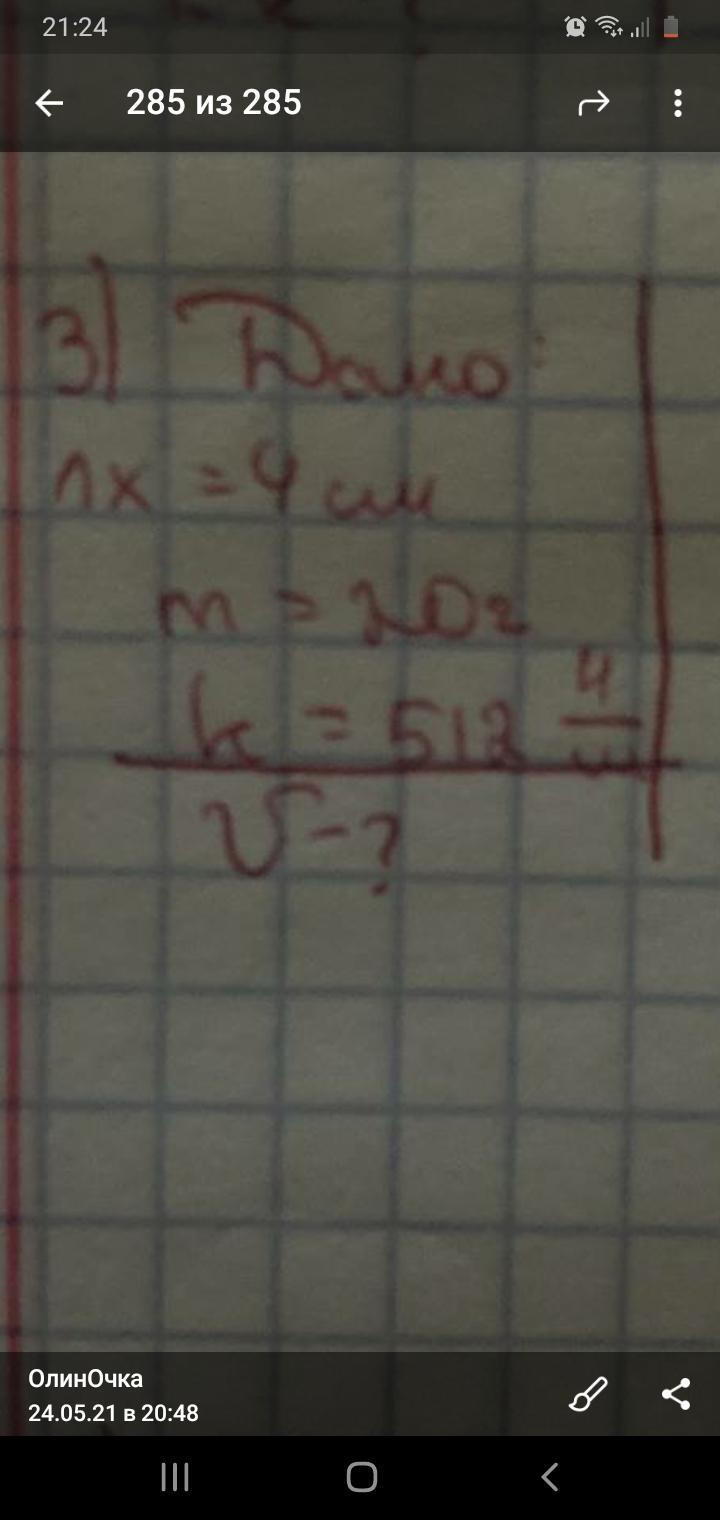 21:24
285 из 285
3) Дано:
Δx = 4 см
m = 20г
k = 512 Н/м
v - ?
ОлинОчка
24.05.21 в 20:48